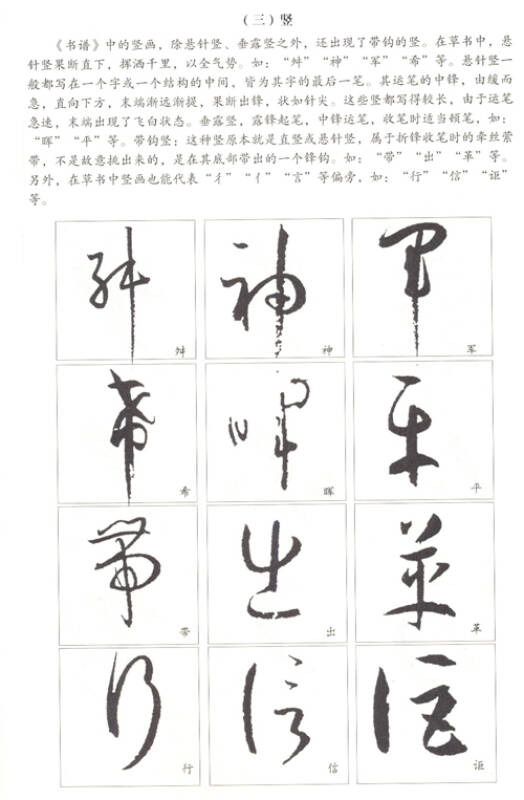 （三）竖
《书谱》中的竖画，除悬针竖、垂露竖之外，还出现了带钩的竖。在草书中，悬
针竖果断直下，挥洒千里，以全气势。如：“舛”“神”“军”“希”等。悬针竖一
般都写在一个字或一个结构的中间，皆为其字的最后一笔。其运笔的中锋，由缓而
急，直向下方，末端渐远渐提，果断出锋，状如针尖。这些竖都写得较长，由于运笔
急速，末端出现了飞白状态。垂露竖，露锋起笔，中锋运笔，收笔时适当顿笔，如：
“晖”“平”等。带钩竖：这种竖原本就是直竖或悬针竖，属于折锋收笔时的牵丝萦
带，不是故意挑出来的，是在其底部带出的一个锋钩。如：“带”“出”“革”等。
另外，在草书中竖画也能代表“彳”“亻”“言”等偏旁，如：“行”“信”“讵”
等。
舛 神 军
希 晖 平
带 出 革
行 信 讵